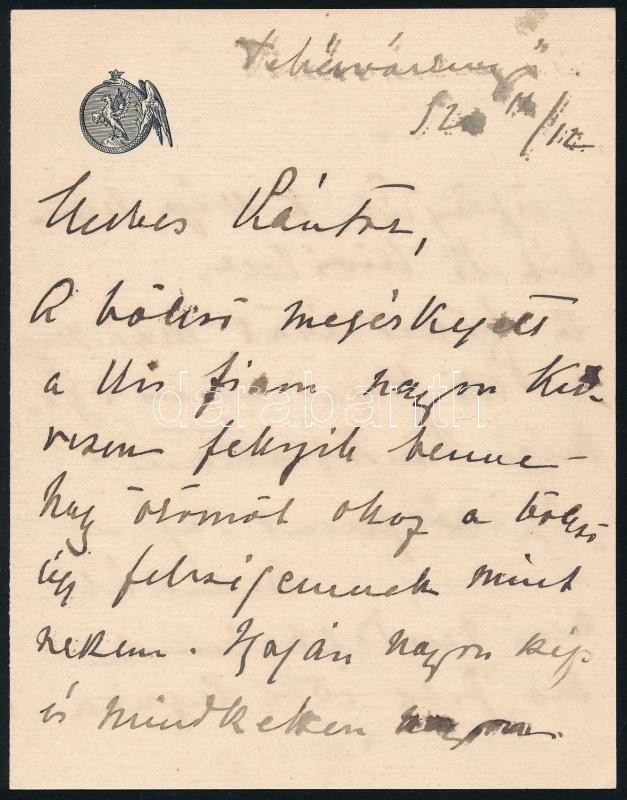 Fehérvárcsurgó
Kedves Sándor,
A bölcső megérkezett
a kis fiam nagyon ked-
vesen fekszik benne –
nagy örömöt okoz a bölcső
úgy feleségemnek mint
nekem. Igazán nagyon szép
és mindketten nagyon
darabanth